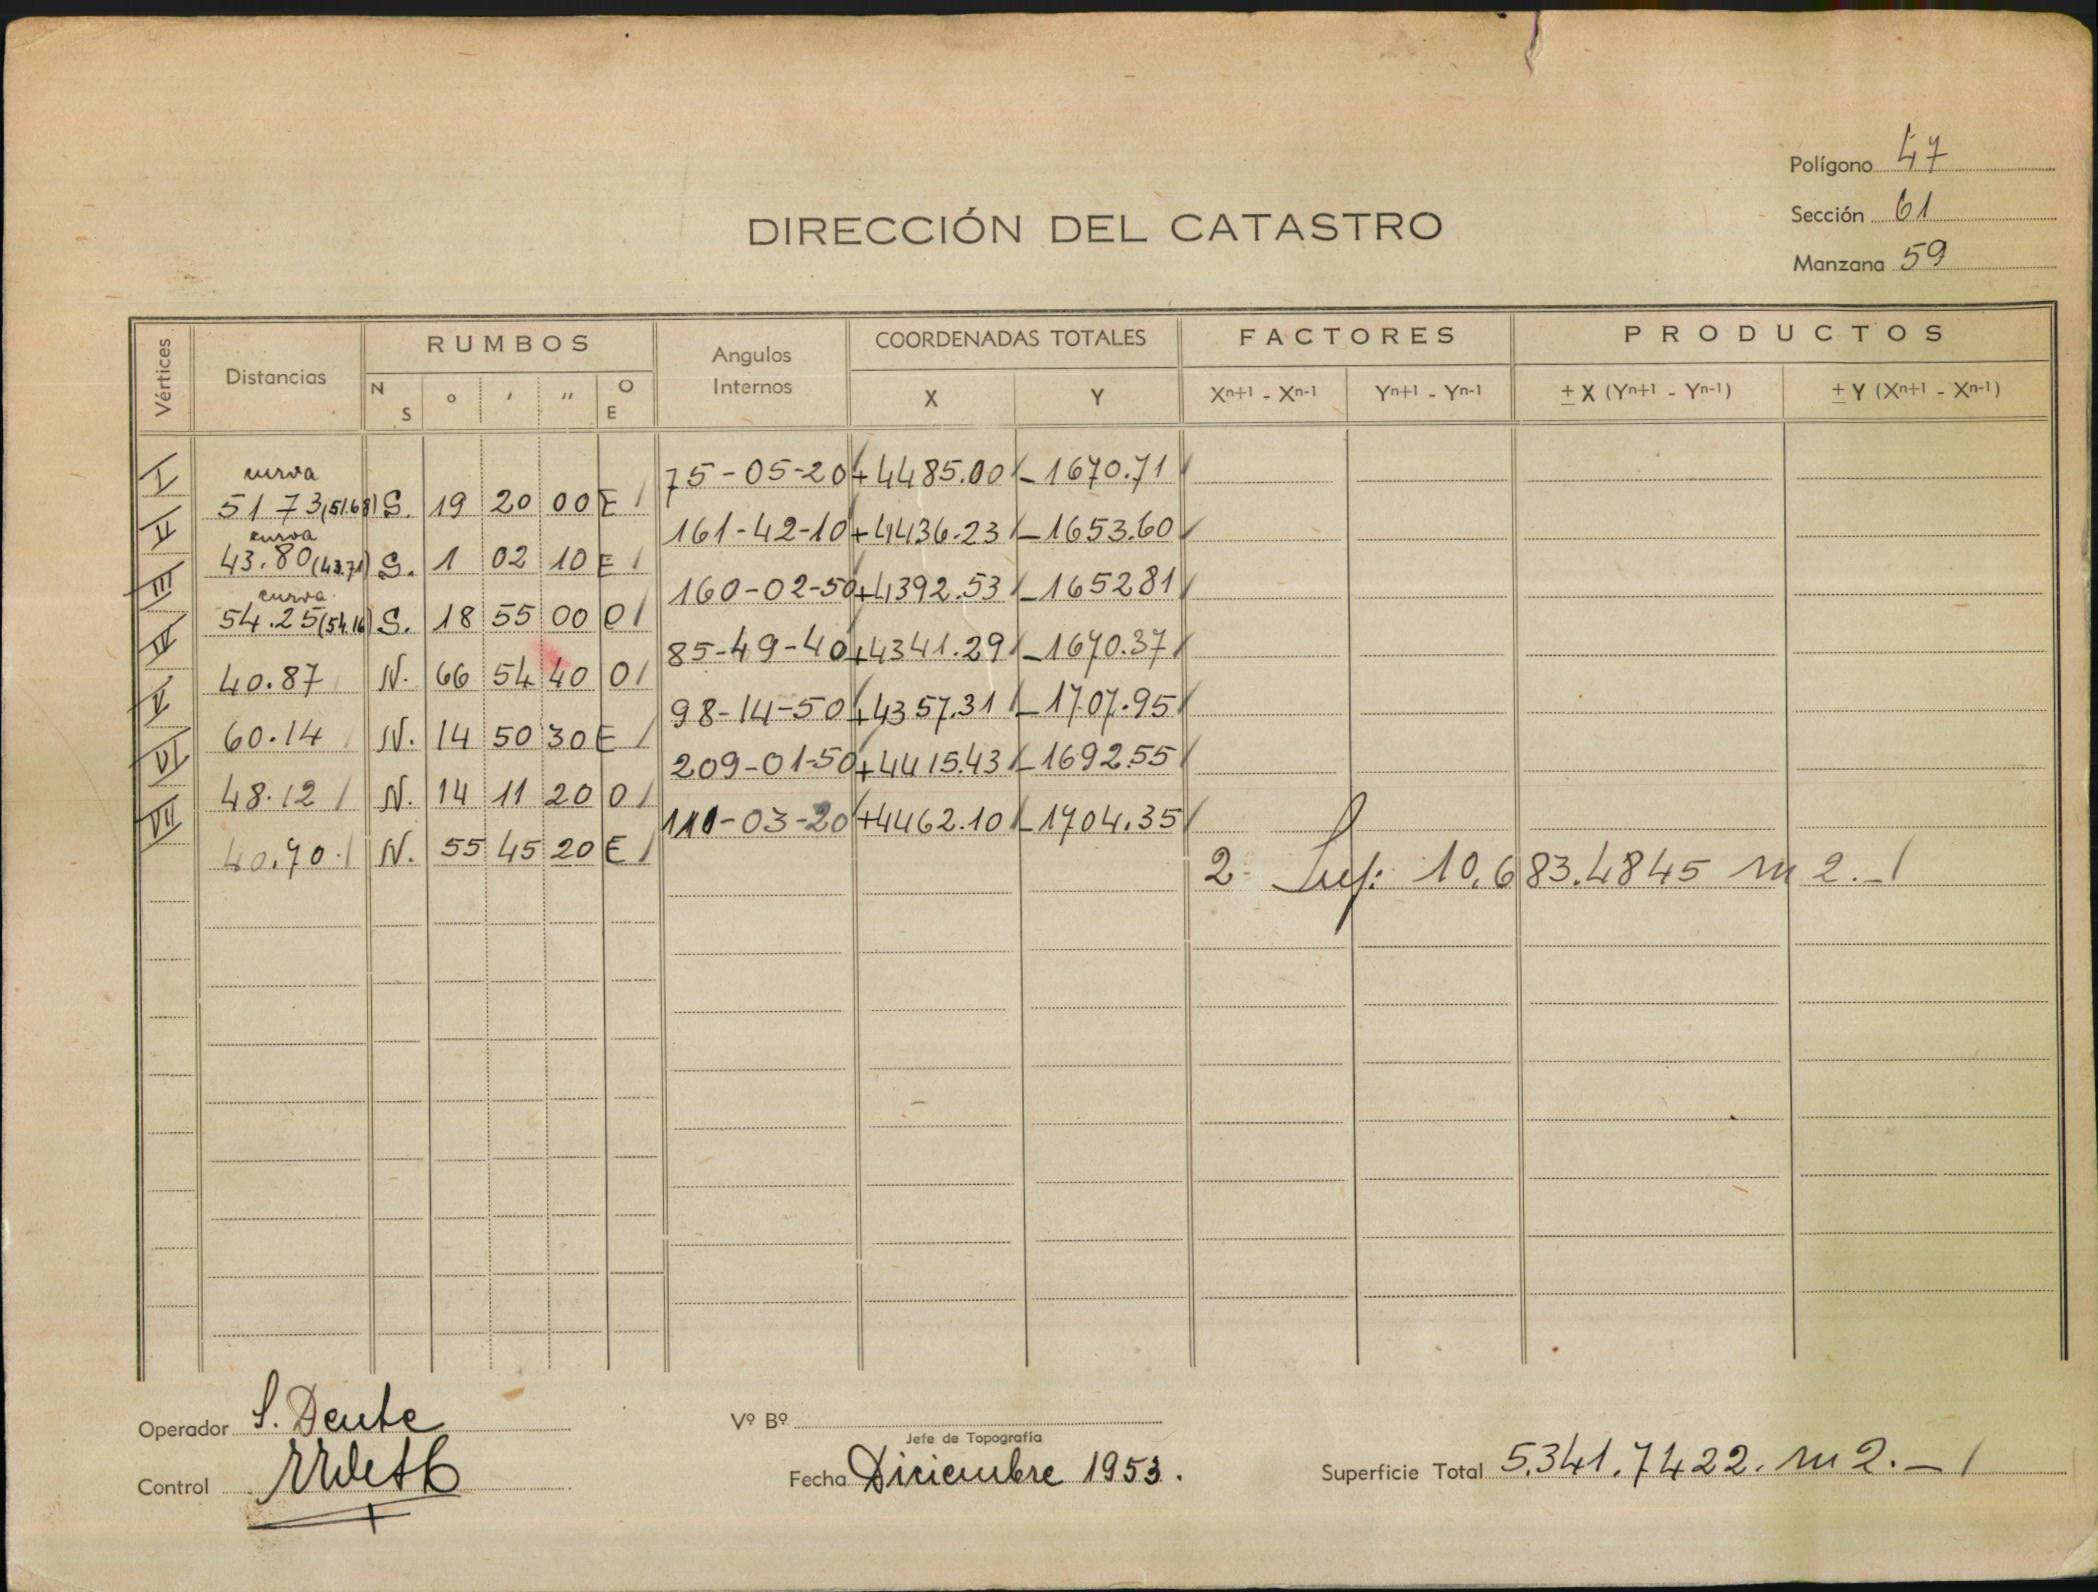 Polígono 47
DIRECCIÓN DEL CATASTRO
Sección 61
Manzana 59
Vértices Distancias RUMBOS Angulos Internos COORDENADAS TOTALES FACTORES PRODUCTOS
N S ° ' '' O E X Y Xn+1 - Xn-1 Yn+1 - Yn-1 ± X (Yn+1 - Yn-1) ± Y (Xn+1 - Xn-1)
I 75-05-20 +4485.00 -1670.71
curva
51 73 (51.68) S. 19 20 00 E
II 161-42-10 +4436.23 -1653.60
curva
43.80 (43.71) S. 1 02 10 E
III 160-02-50 +4392.53 -165281
curva
54.25 (54.16) S. 18 55 00 O
IV 85-49-40 +4341.29 -1670.37
40.87 N. 66 54 40 O
V 98-14-50 +4357.31 -1707.95
60.14 N. 14 50 30 E
VI 209-01-50 +4415.43 -1692.55
48.12 N. 14 11 20 O
VII 110-03-20 +4462.10 -1704.35
40.70 N. 55 45 20 E
2- Sup: 10.683.4845 m2.-
Operador S. Deute
Vº Bº
Jefe de Topografía
Control
Fecha Diciembre 1953.
Superficie Total 5.341.7422. m2.-